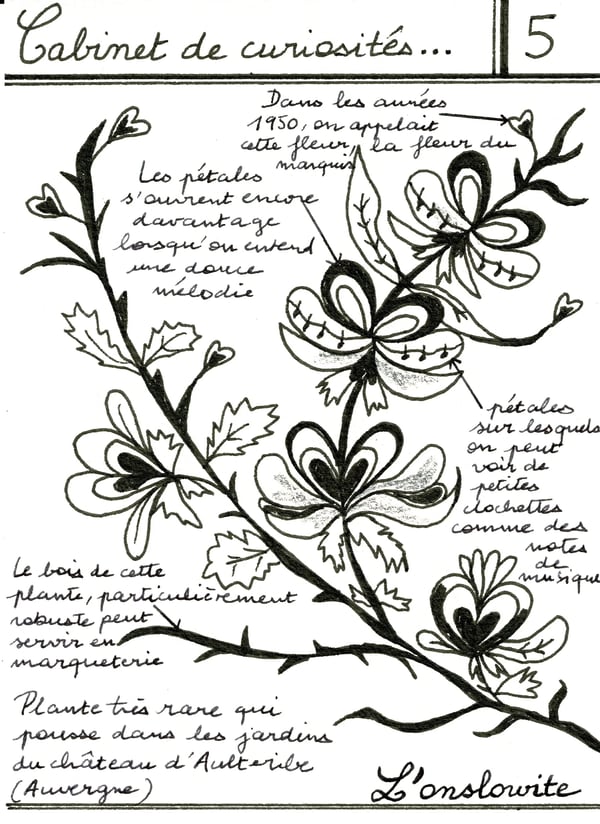 Cabinet de curiosités...
5
Dans les années
1950, on appelait
cette fleur, la fleur du
marquis
Les pétales
s'ouvrent encore
davantage
lorsqu'on entend
une douce
mélodie
pétales
sur lesquels
on peut
voir de
petites
clochettes
comme des
notes
de
musique
Le bois de cette
plante, particulièrement
robuste peut
servir en
marqueterie
Plante très rare qui
pousse dans les jardins
du château d'Aulteribe
(Auvergne)
L'onslowite